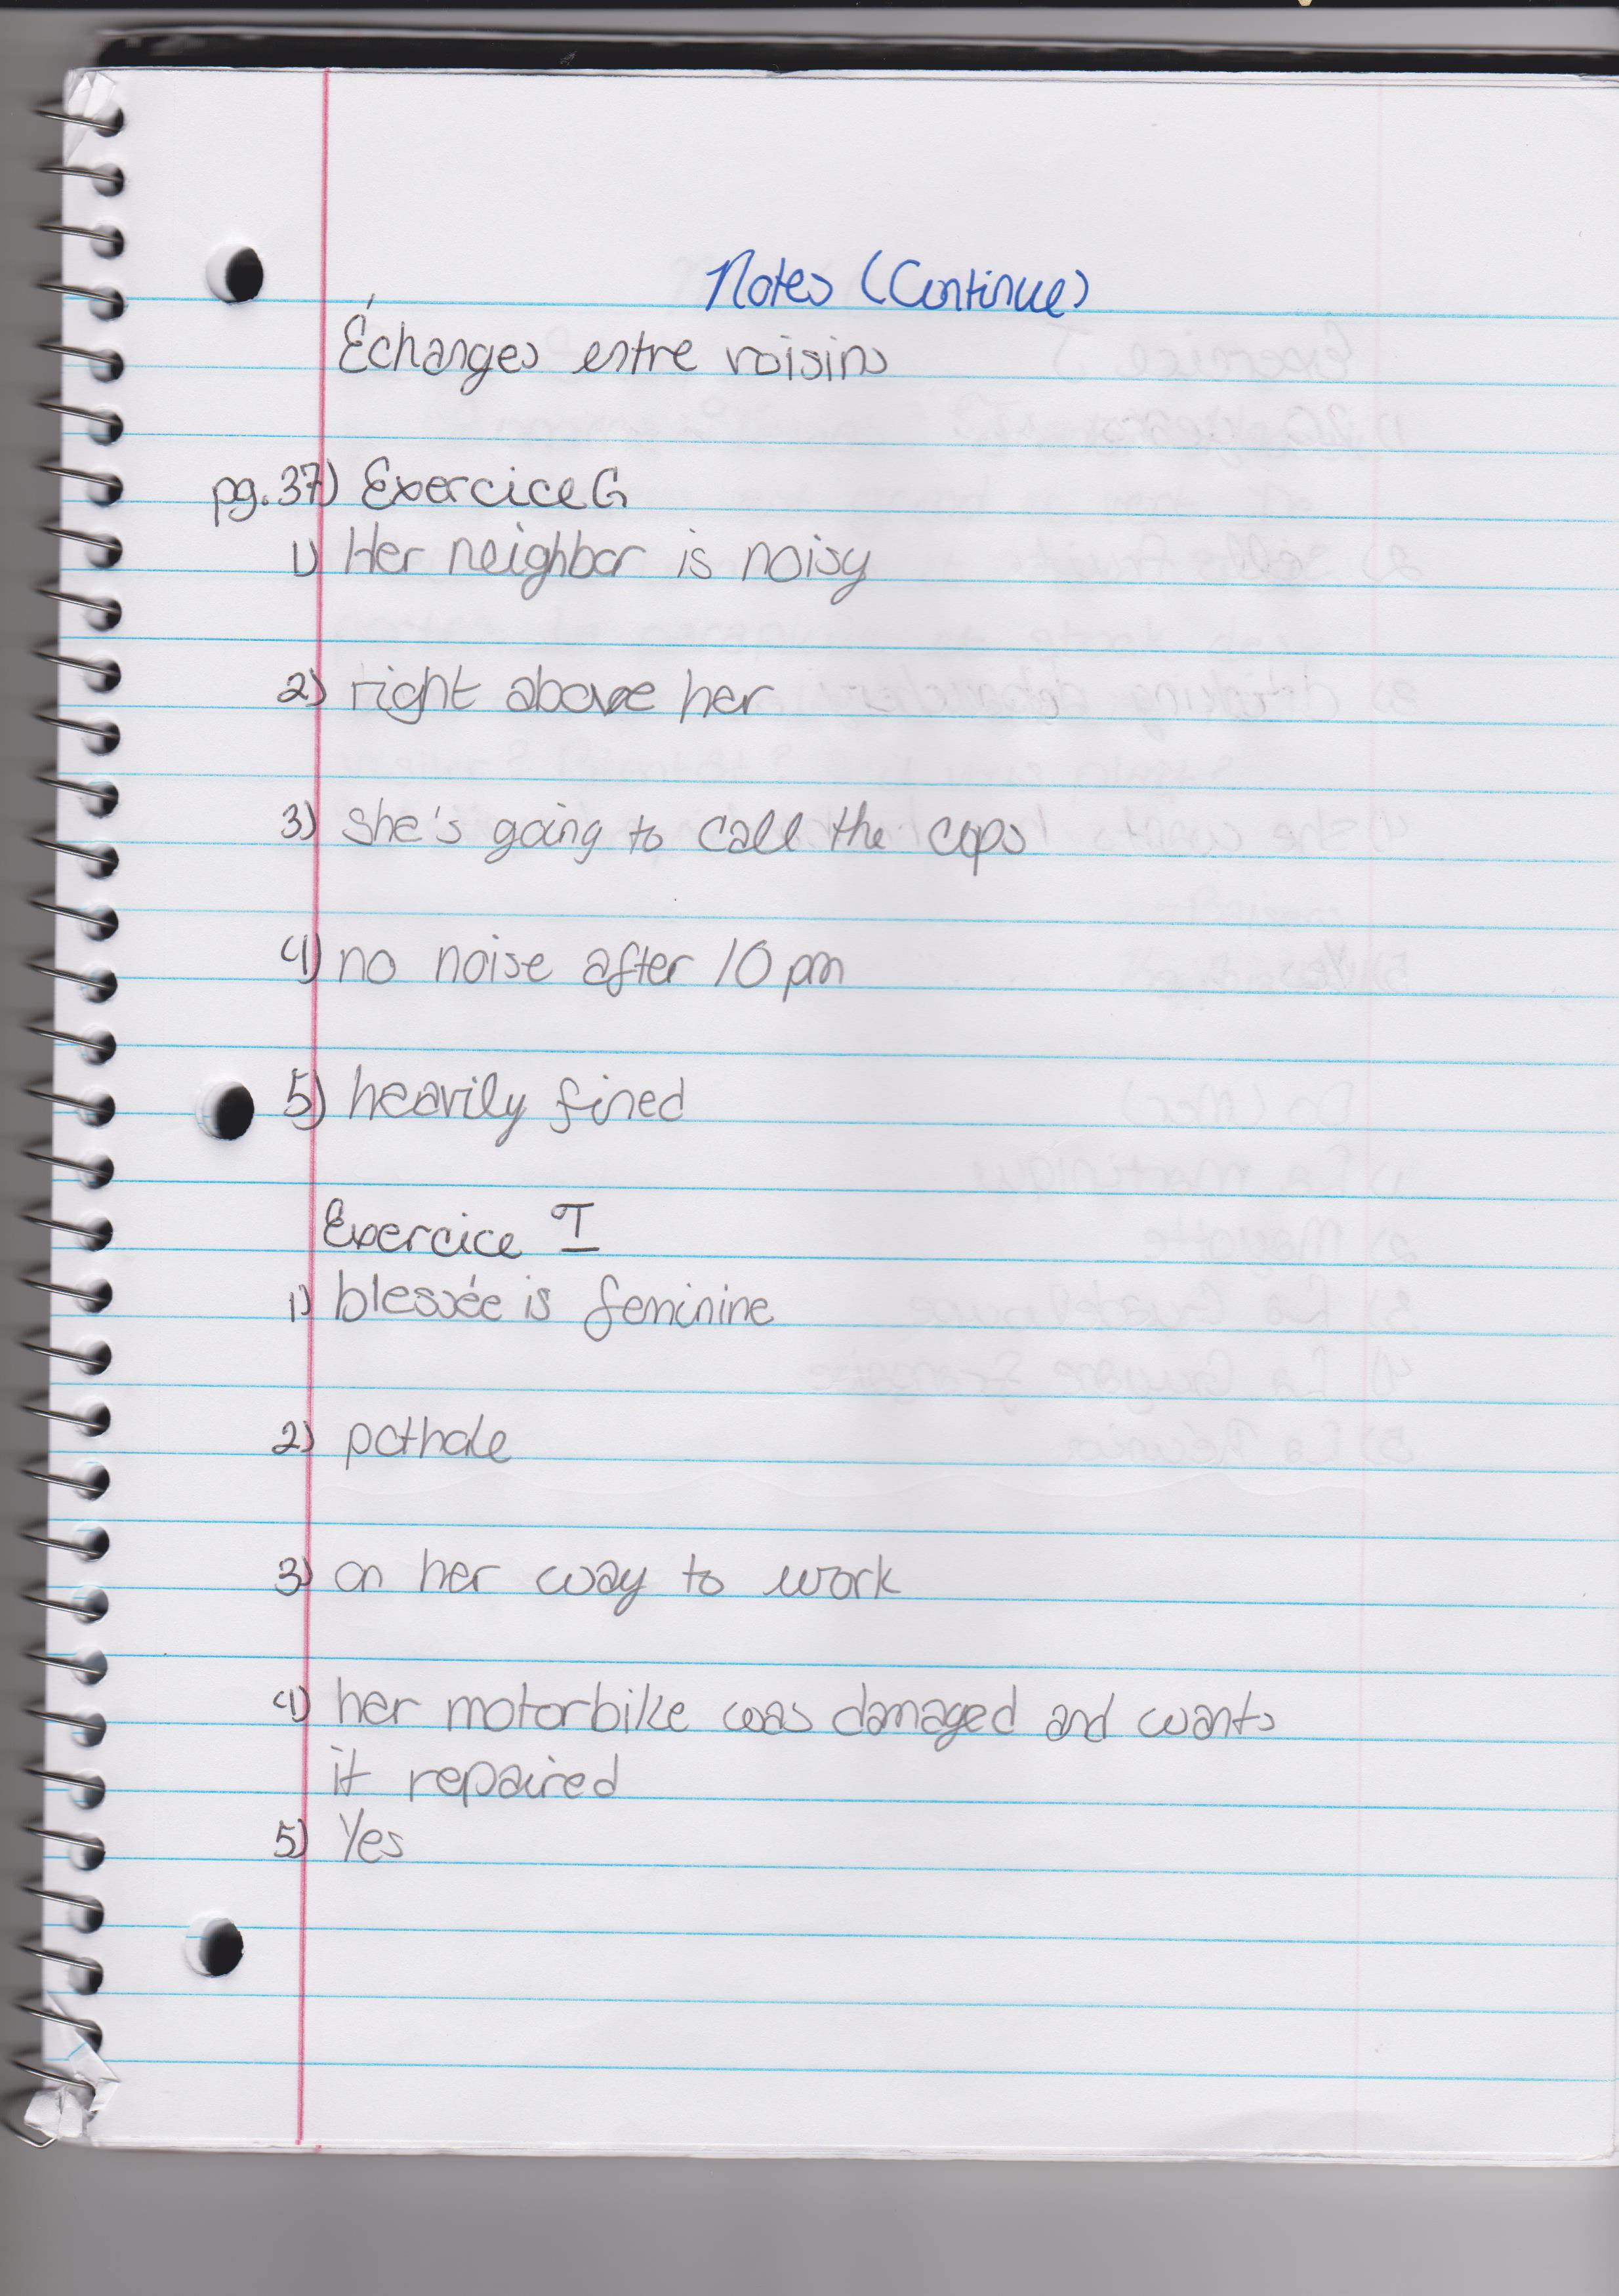 Notes (Continue)
Échanges entre voisins
pg. 37) Exercice G
1) Her neighbor is noisy
2) right above her
3) she's going to call the cops
4) no noise after 10 pm
5) heavily fined
Exercice I
1) blessée is feminine
2) pothole
3) on her way to work
4) her motorbike was damaged and wants
it repaired
5) Yes